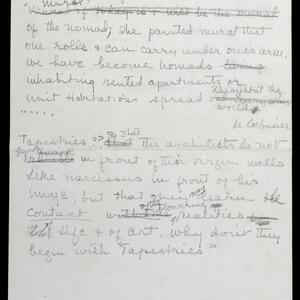 mural"
will be the mural
of the nomad; the painted mural that
one rolls & can carry under ones arm.
We have become nomads
inhabiting rented apartments or
unit Habitations spread throughout the
world
Le Corbusier
Tapestries?? so that
the architects do not
in front of their virgin walls
like narcissus in front of his
image, but that they learn the
contact with the flowering realities
of life & of art. Why don't they
begin with Tapestries"